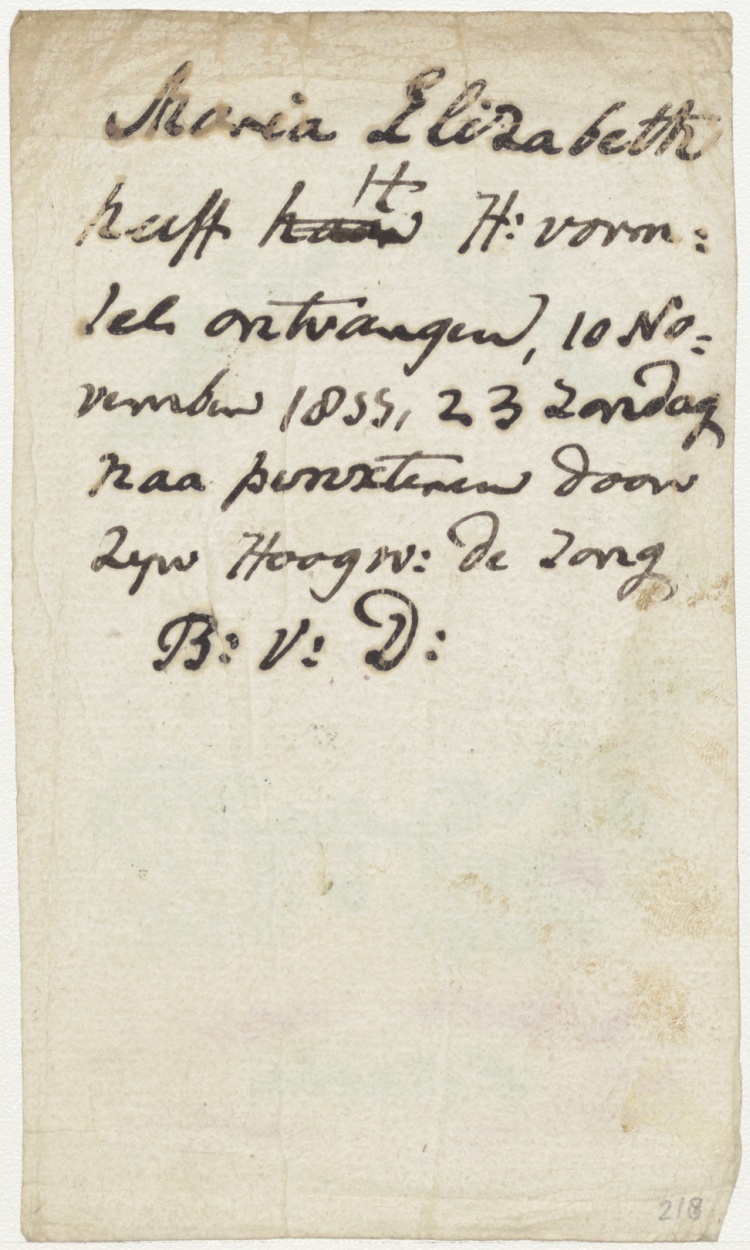 Maria Elizabeth
heeft haar H H: vorm:
sels ontvangen, 10 No:
vember 1855, 23 zondag
naa pinxteren door
Zyn Hoogw: de Jong
B: V: D:
218